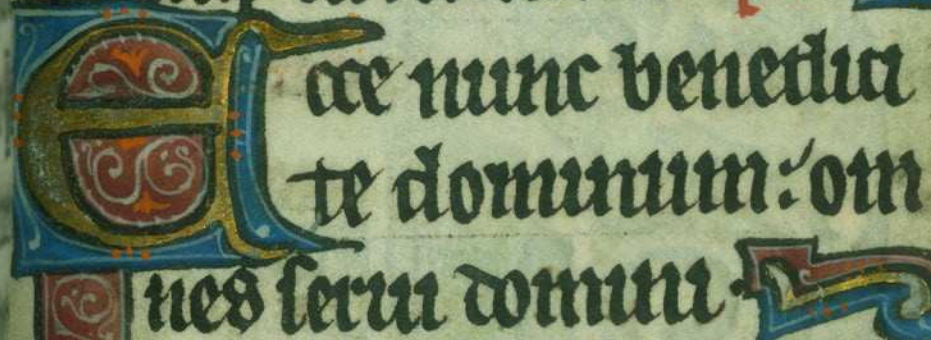 Ecce nunc benedici
te dominum: om
nes serui domini